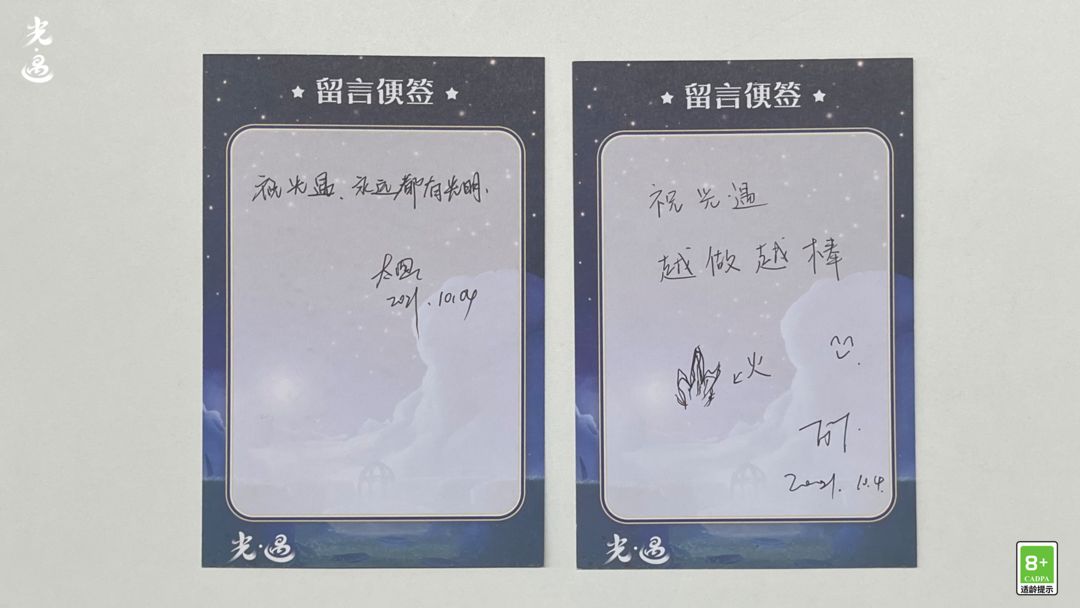 光·遇
留言便签
祝光遇、永远都有光明.
2021.10.04
光·遇
留言便签
祝光·遇
越做越棒
火
2021.10.4.
光·遇
8+
CADPA
适龄提示